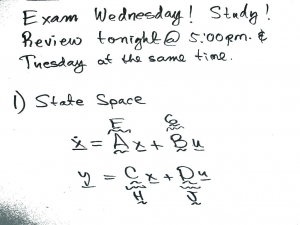 Exam Wednesday! Study!
Review tonight @ 5:00pm. &
Tuesday at the same time.
1) State Space
E G
ẋ = A x + B u
y = C x + D u
H J